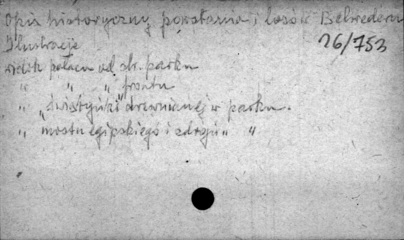 Opis historyczny powstania i losów Belwederu
Ilustracje
26/753
widok pałacu od str. parku
" " " frontu
" "świątyńki" drewnianej w parku.
" mostu egipskiego i sfinga "